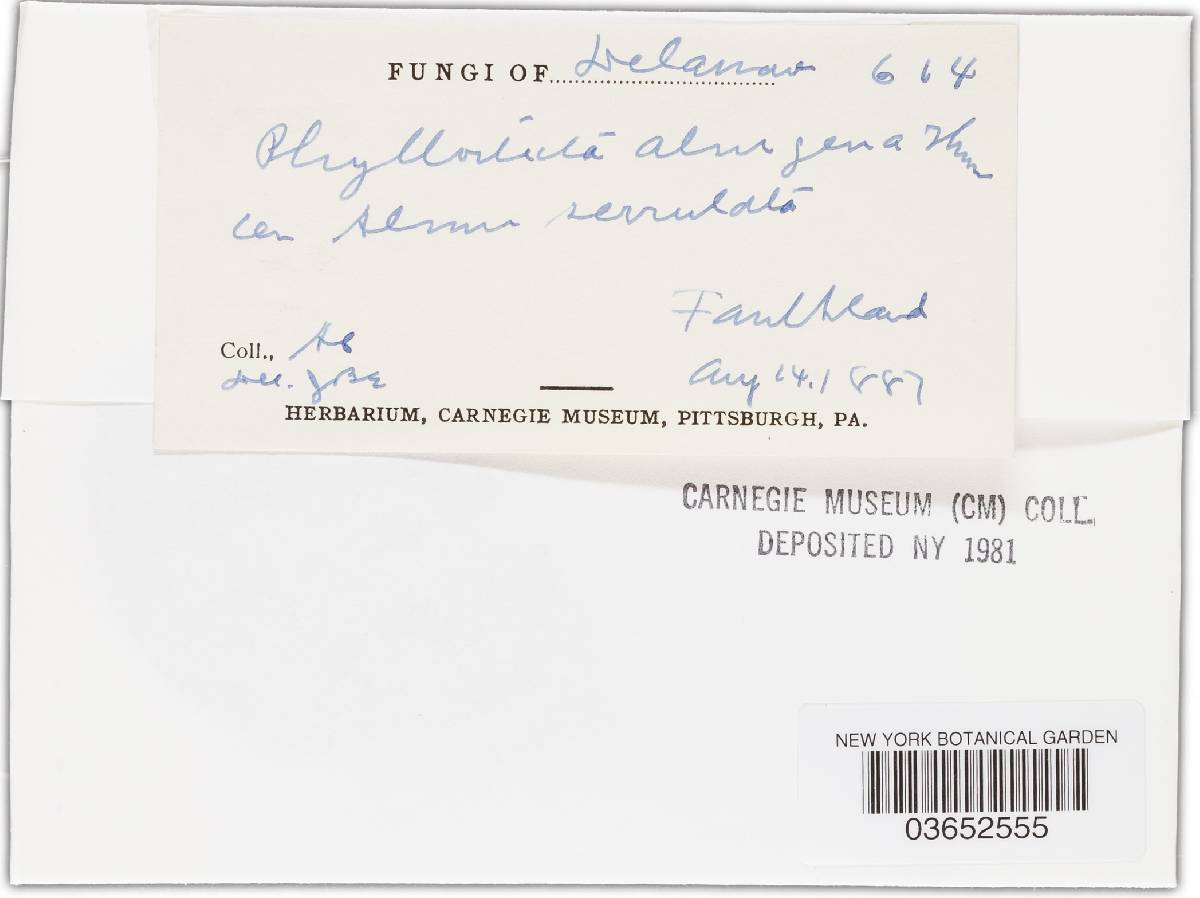 FUNGI OF Delaware 614
Phyllosticta alnigena Thm
on Alnus serrulata
Faulkland
Coll., AC
Aug 14. 1887
Det. JBE
HERBARIUM, CARNEGIE MUSEUM, PITTSBURGH, PA.
CARNEGIE MUSEUM (CM) COLL.
DEPOSITED NY 1981
NEW YORK BOTANICAL GARDEN
03652555